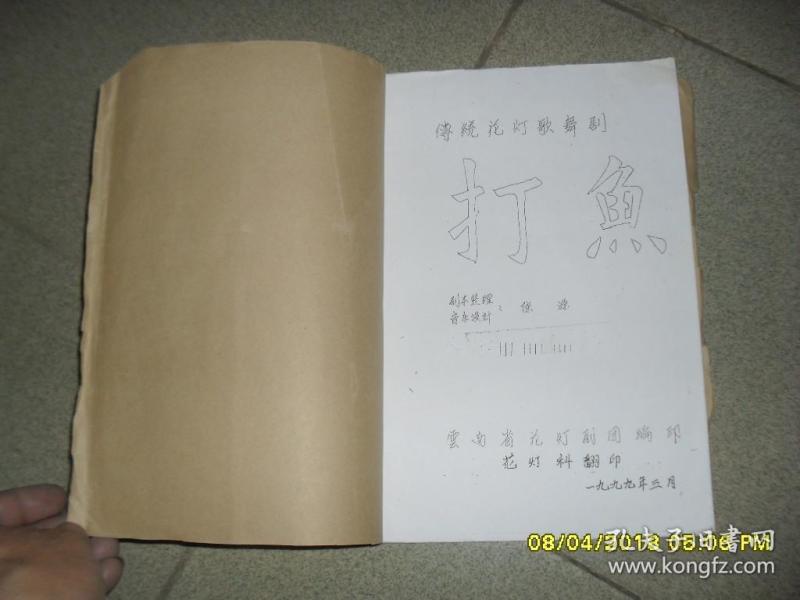 傳統花灯歌舞剧
打魚
剧本整理
音乐设计：
雲南省花灯剧团编印
花灯科翻印
一九九九年三月
08/04/2018 05:06 PM
孔夫子旧书网
www.kongfz.com